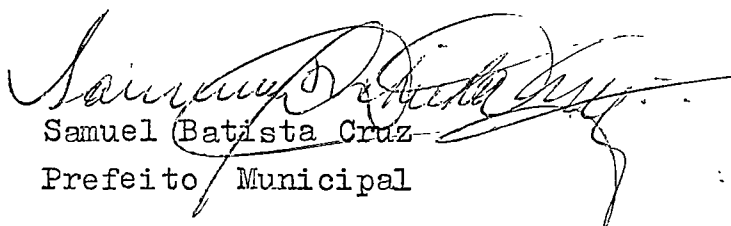 Samuel Batista Cruz
Prefeito Municipal